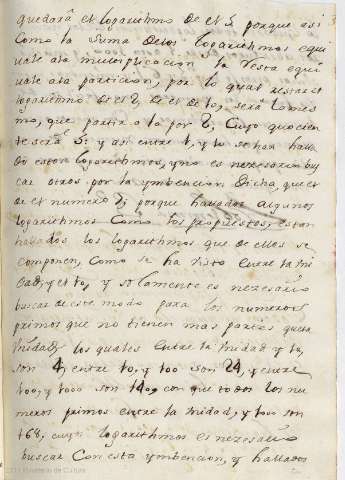 quedarà el logarithmo de el 5 porque asi
Como la suma de los logarithmos equi
vale a la multiplicacion la resta equi
vale a la particion, por lo qual restar el
logarithmo de el 2 de el de 10, serà lo mes
mo, que partir 10 por 2, Cuyo quocien
te serà 5; y asi entre 1, y 10 se han halla
do estos logarithmos, y no es nezesario bus
car otros por la ymbencion dicha, que el
de el numero 7, porque hallados algunos
logarithmos Como los propuestos, estan
hallados los logarithmos que de elles se
componen, Como se ha visto entre la vni
dad, y el 10, y solamente es nezesario
buscar de este modo para los numeros
primos que no tienen mas partes que la
vnidad, los quales entre la vnidad y 10,
son 4, entre 10, y 100 son 21, y entre
100, y 1000 son 140, con que todos los nu
meros primos entre la vnidad, y 1000 son
168, cuyos logarithmos es nezesario
buscar Con esta ymbencion, y hallados
Ministerio de Cultura